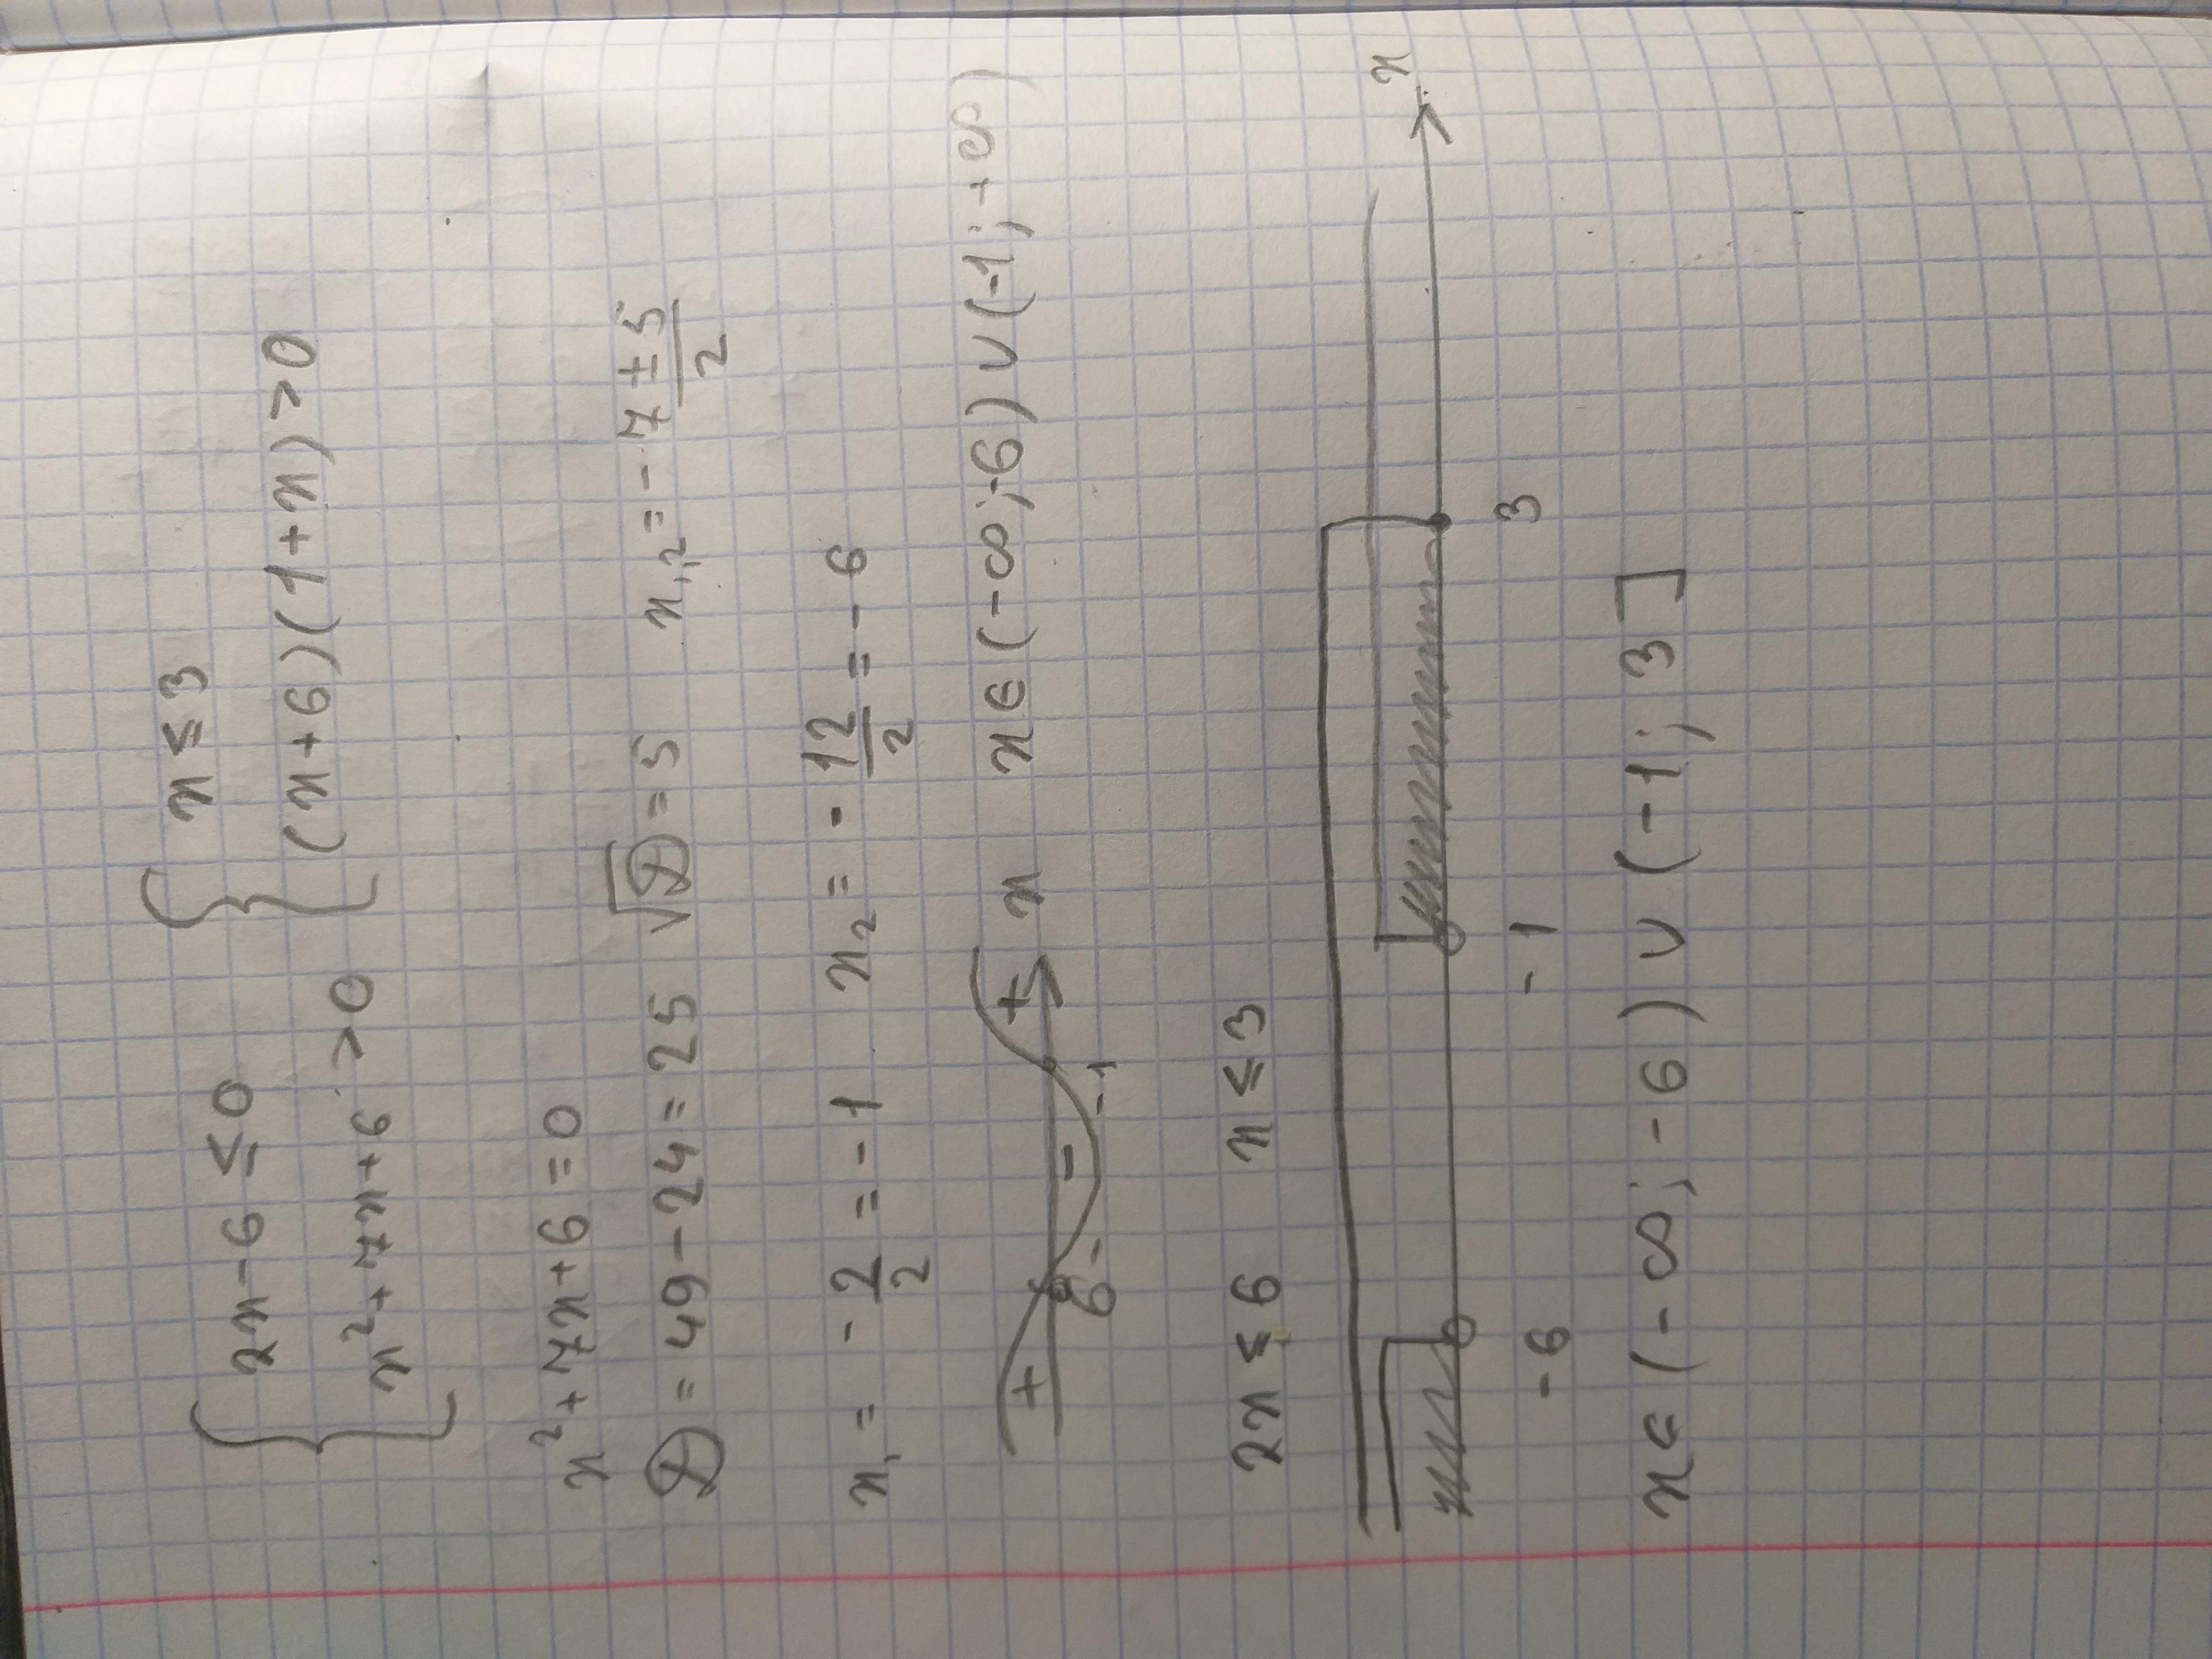 { 2x - 6 ≤ 0 { x ≤ 3
x² + 7x + 6 > 0 (x + 6)(1 + x) > 0
x² + 7x + 6 = 0
D = 49 - 24 = 25 √D = 5 x₁,₂ = -7 ± 5 / 2
x₁ = - 2/2 = - 1 x₂ = - 12/2 = - 6
+ - + x x ∈ (-∞; -6) ∪ (-1; +∞)
6- -1
2x ≤ 6 x ≤ 3
x
-6 -1 3
x ∈ (-∞; -6) ∪ (-1; 3]